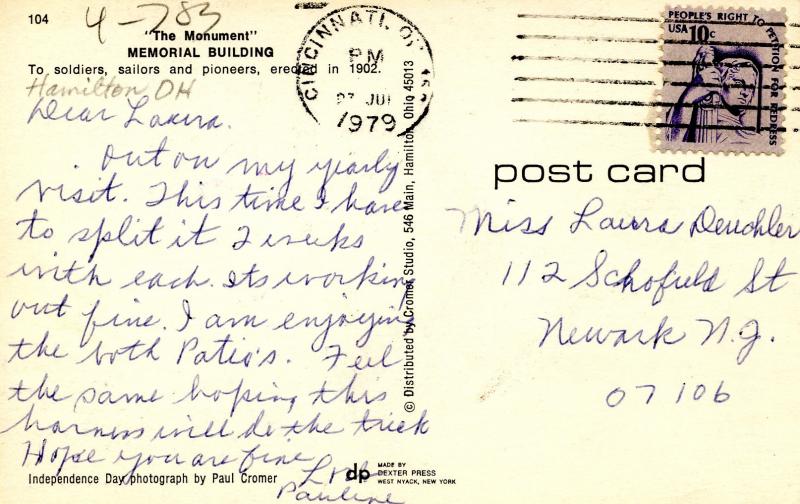 104
4-783
"The Monument"
MEMORIAL BUILDING
To soldiers, sailors and pioneers, erected in 1902.
Hamilton, OH
Dear Laura.
Out on my yearly
visit. This time I have
to split it 2 weeks
with each. Its working
out fine. I am enjoying
the both Patio's. Feel
the same hoping this
harness will do the trick
Hope you are fine
Love
Pauline
Independence Day photograph by Paul Cromer
© Distributed by Cromer Studio, 546 Main, Hamilton, Ohio 45013
dp
MADE BY
DEXTER PRESS
WEST NYACK, NEW YORK
CINCINNATI, OH
PM
JUL
1979
PEOPLE'S RIGHT TO PETITION FOR REDRESS
USA 10c
post card
Miss Laura Deuchler
112 Schofield St
Newark N.J.
07106